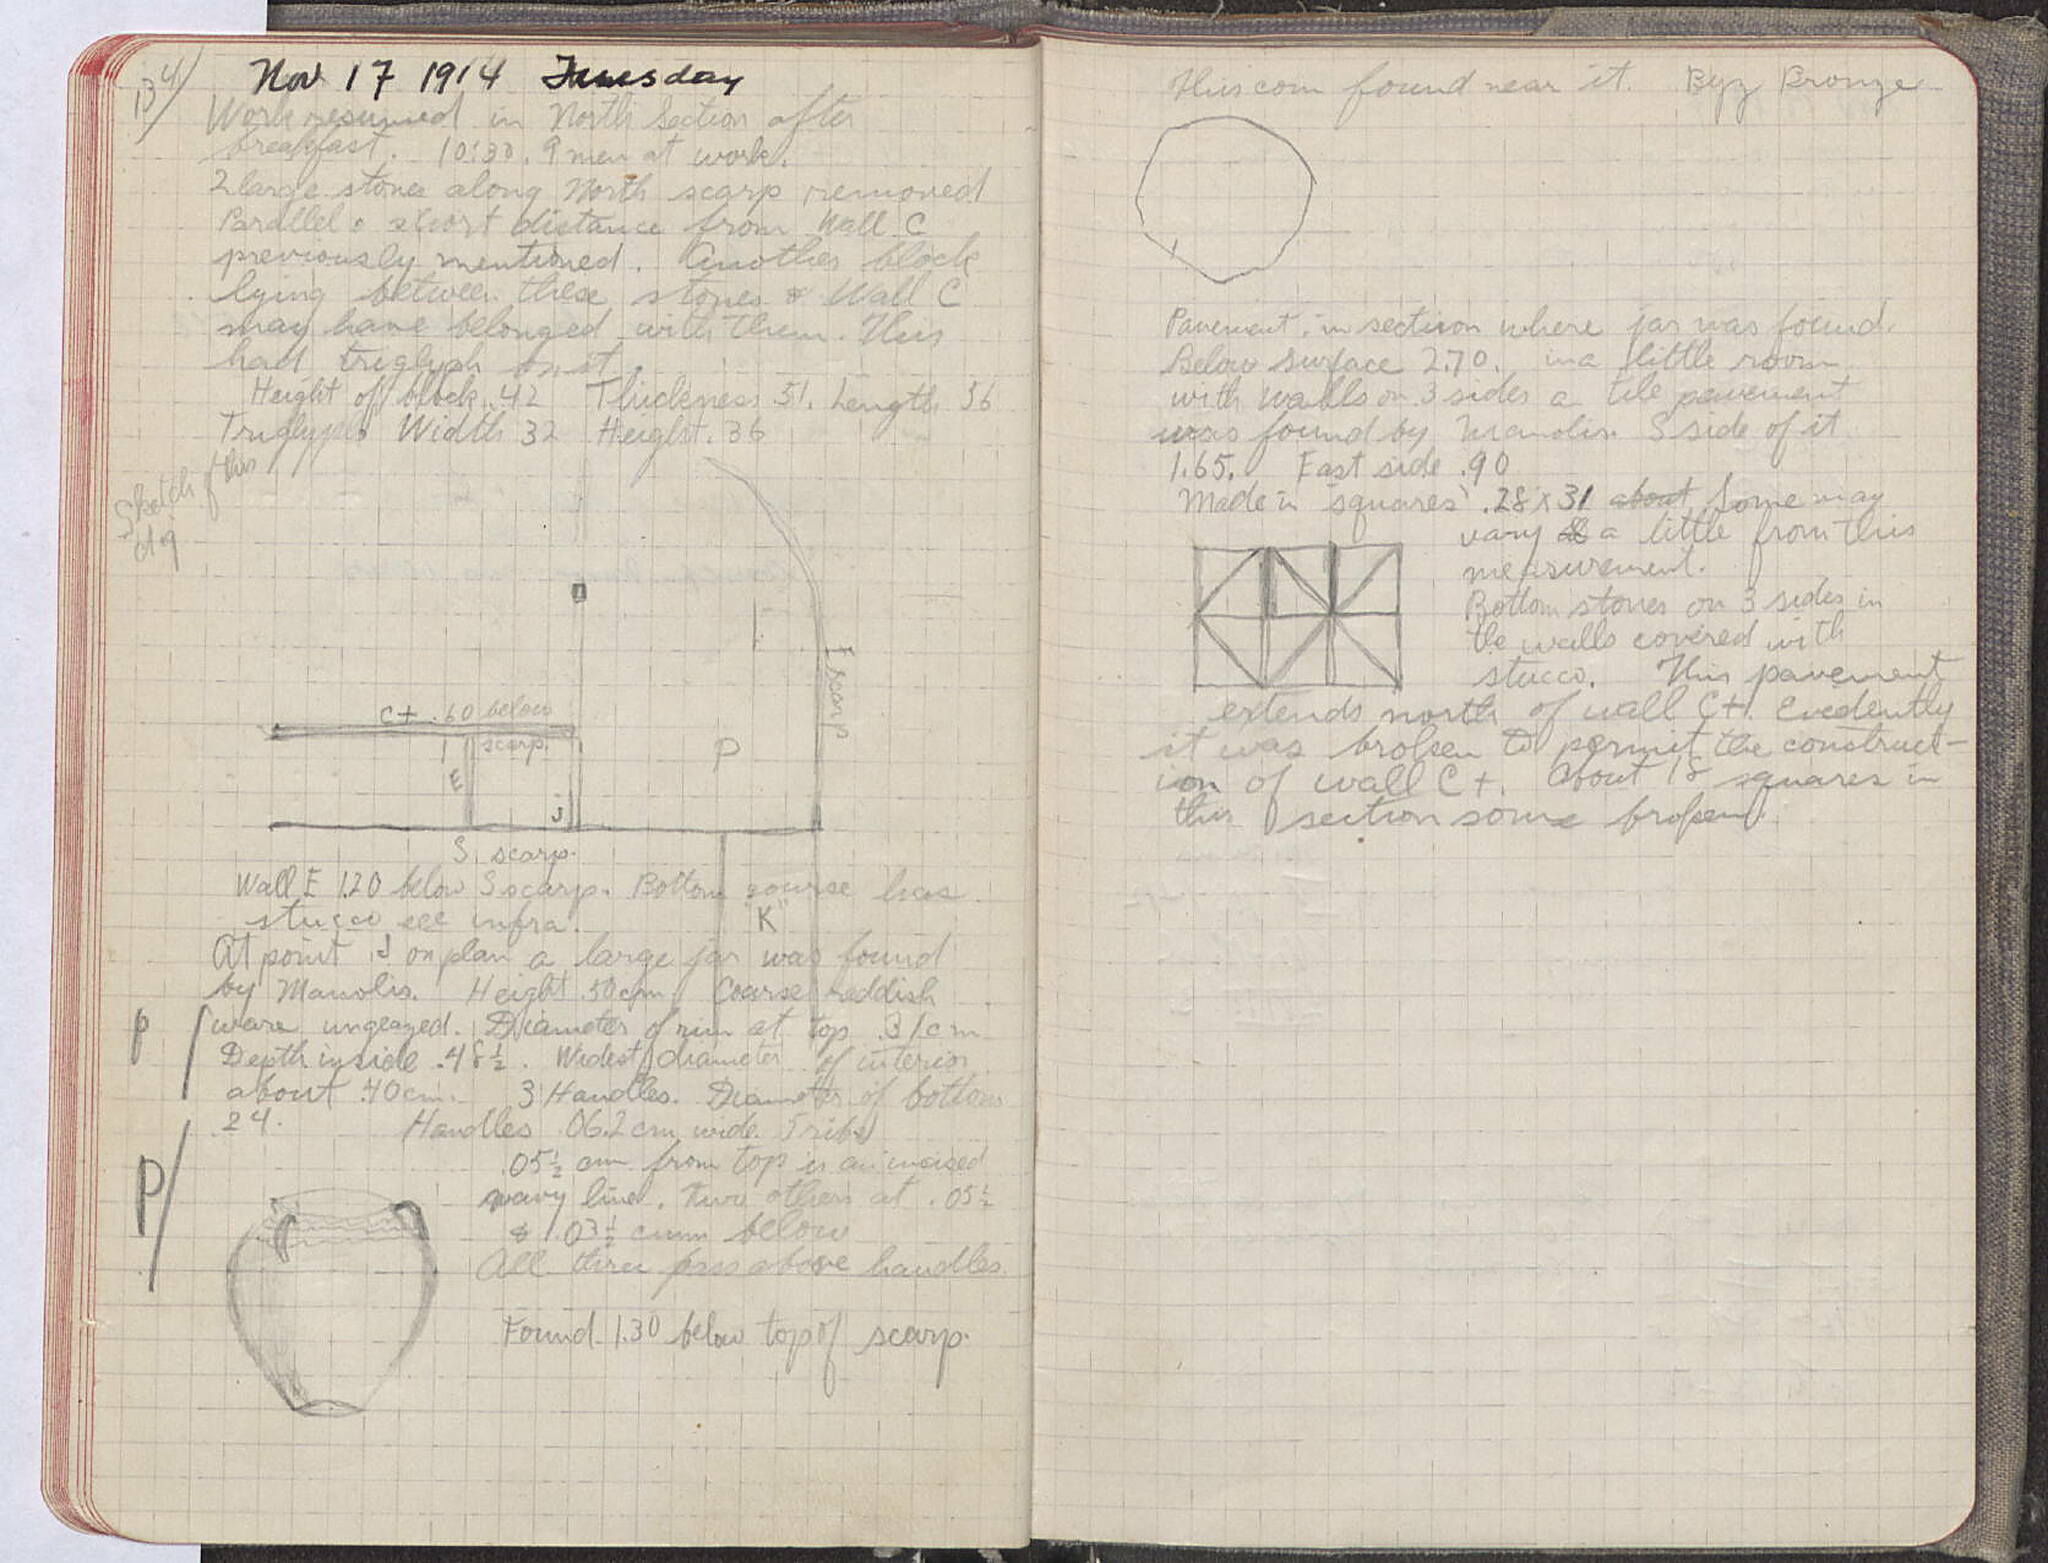 134/
Nov 17 1914 Tuesday
Work resumed in North Section after
breakfast. 10:30. 9 men at work.
2 large stones along North scarp removed
Parallel & short distance from Wall C
previously mentioned. Another block
lying between these stones & Wall C
may have belonged with them. This
had triglyph on it.
Height of block .42 Thickness 51. Length 56
Triglyph Width 32 Height .36
Sketch of this
dig
E scarp
C+ .60 below
scarp.
P
E
J
S. scarp.
Wall E 1.20 below S scarp. Bottom course has
stucco see infra.
"K"
At point J on plan a large jar was found
by Manolis. Height .50 cm. Coarse reddish
P
ware ungeazed. Diameter of rim at top .31 cm
Depth inside .48½. Widest diameter of interior
about .40 cm. 3 Handles. Diameter of bottom
24. Handles .06.2 cm wide. 5 ribs
P/
.05½ cm from top is an incised
wavy line. Two others at .05½
& .03½ cmm below
All three pass above handles.
Found 1.30 below top of scarp.
This coin found near it. Byz Bronze
Pavement in section where jar was found.
Below surface 2.70. in a little room
with walls on 3 sides a tile pavement
was found by Manolis. S side of it
1.65. East side .90
Made in "squares" .28 x 31 about Some may
vary a little from this
measurement.
Bottom stones on 3 sides in
the walls covered with
stucco. This pavement
extends north of wall C+. Evedently
it was broken to permit the construct-
ion of wall C+. About 18 squares in
this section some broken.